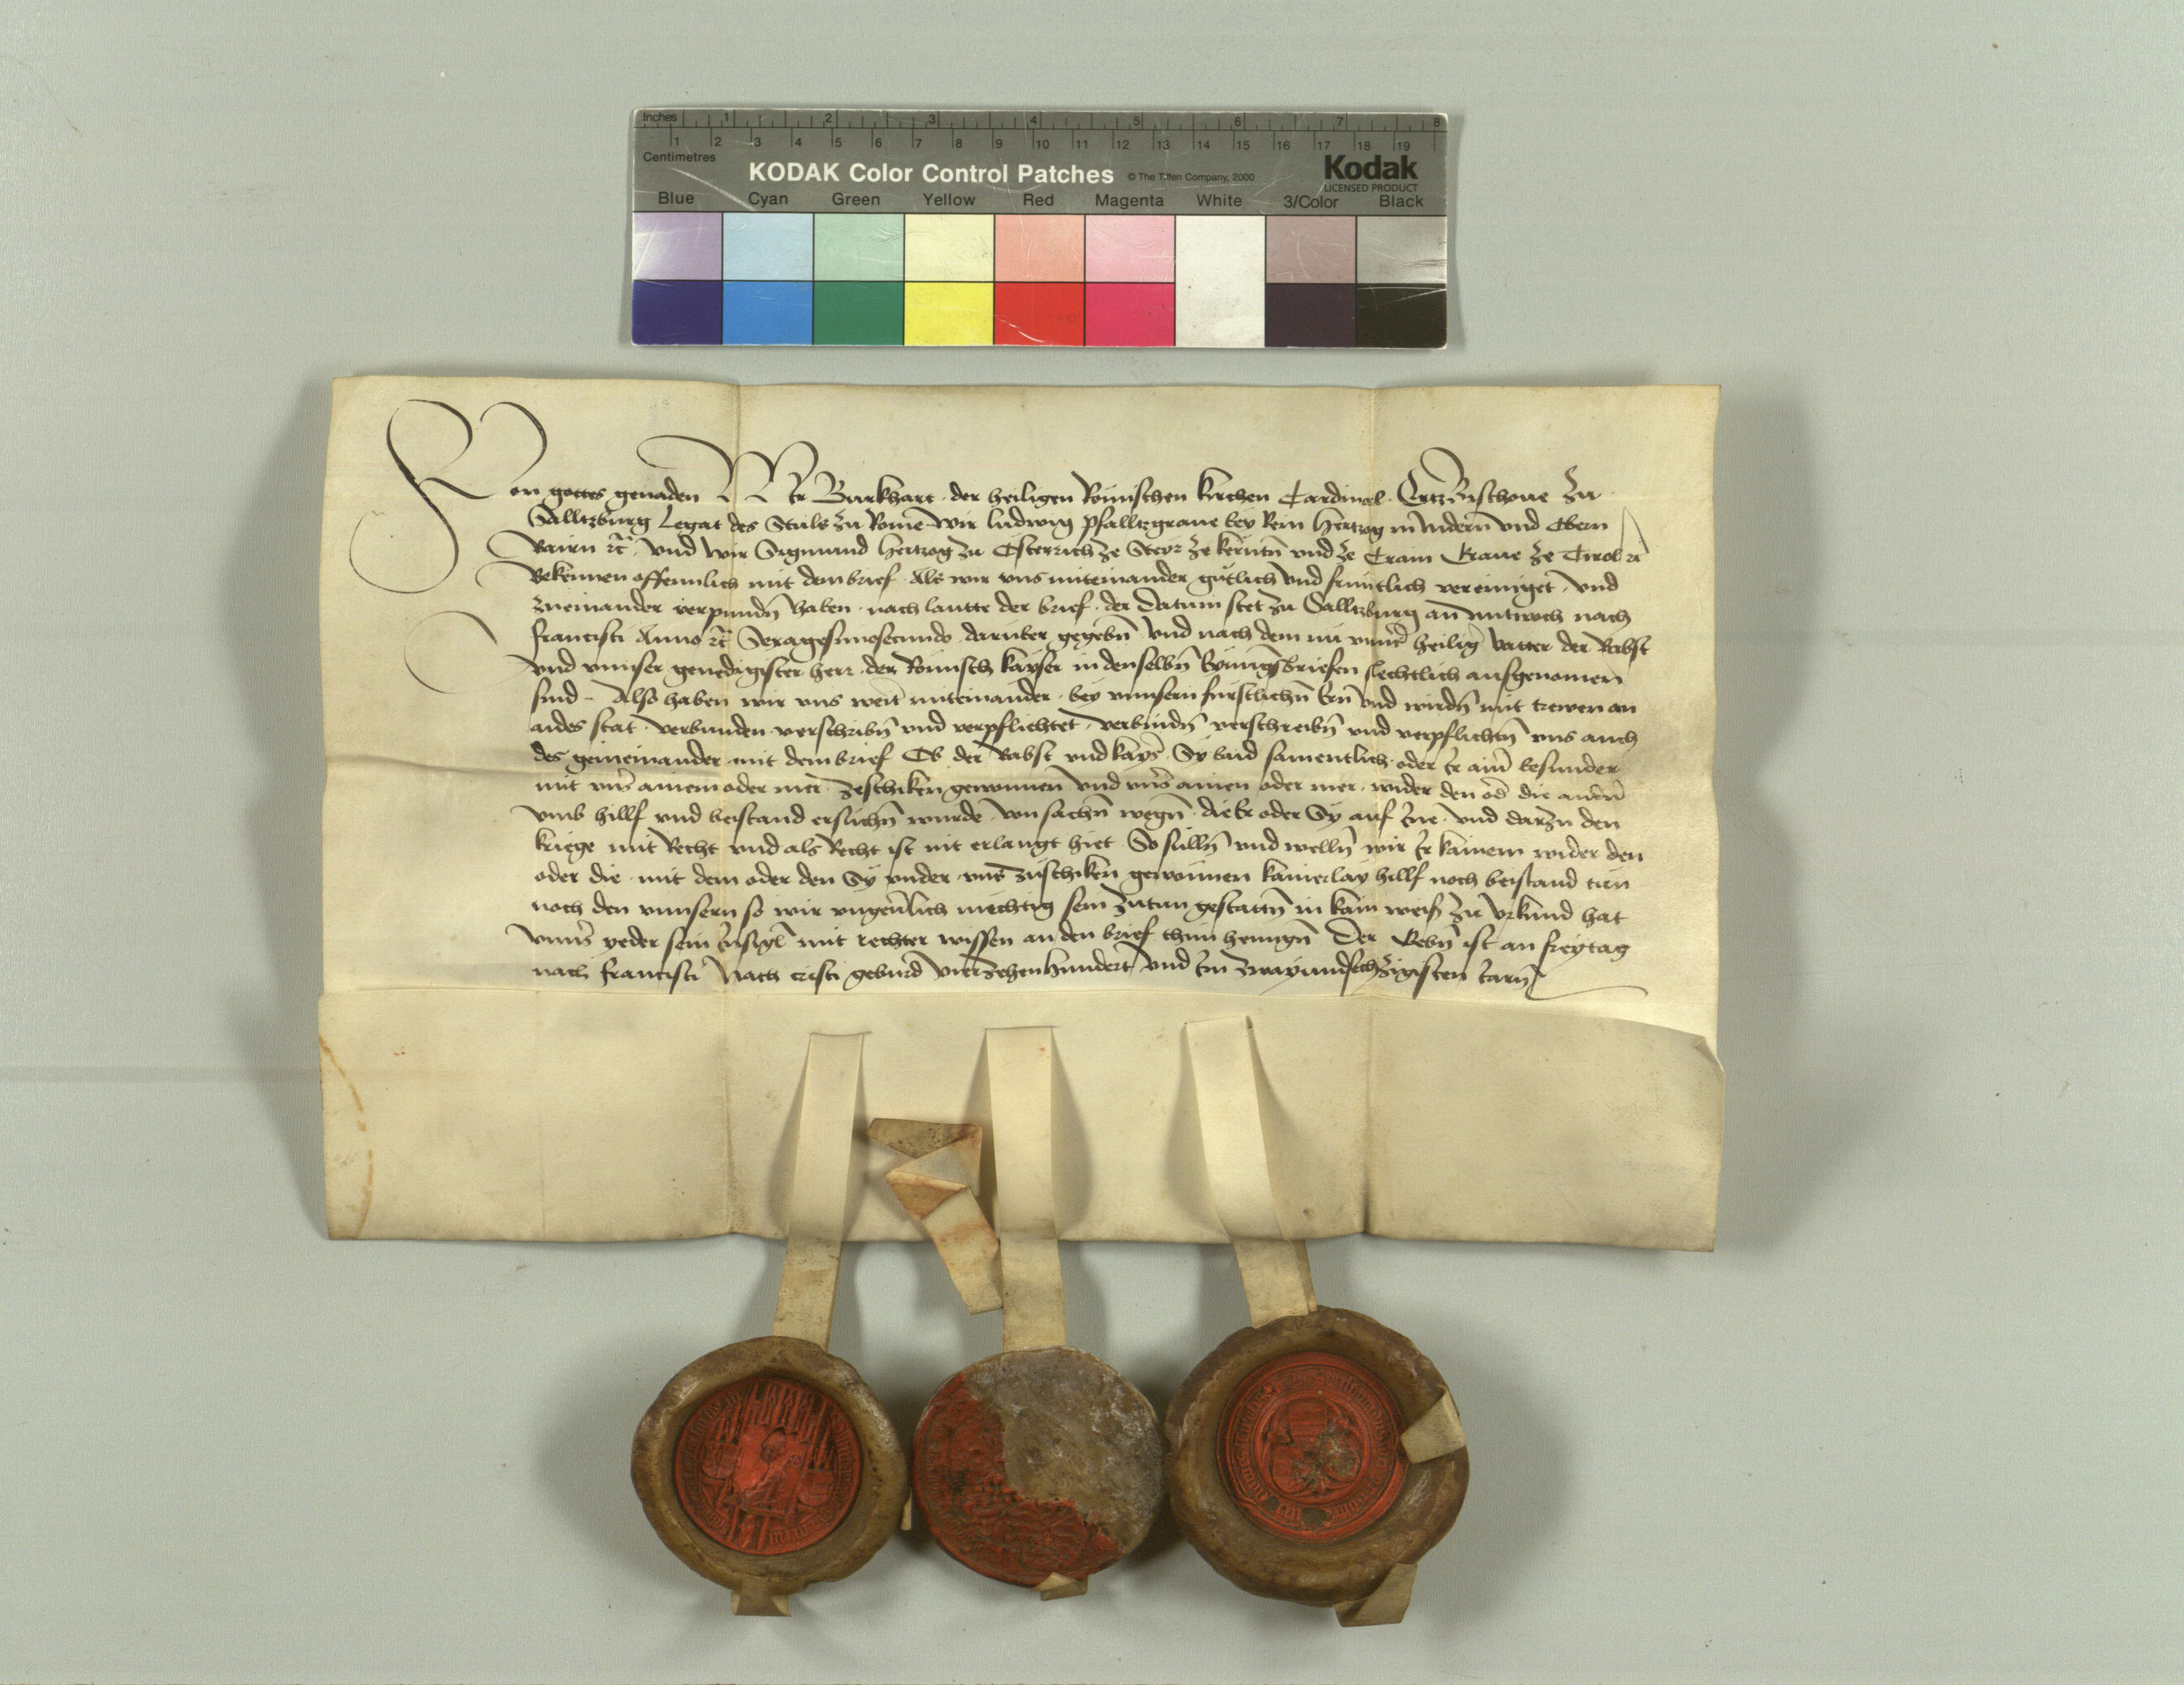 Inches 1 2 3 4 5 6 7 8
1 2 3 4 5 6 7 8 9 10 11 12 13 14 15 16 17 18 19
Centimetres
KODAK Color Control Patches © The Tiffen Company, 2000 Kodak
LICENSED PRODUCT
Blue Cyan Green Yellow Red Magenta White 3/Color Black
Von gottes genaden Wir Burkhart der heiligen Römischen kirchen Cardinal Ertzbischoue zu
Salltzburg Legat des Stuls zu Rome wir ludwig pfalltzgraue bey Rein Hertzog in Nidern und Obern
Bairn ꝛc und wir Sigmund Hertzog zu Osterrich ze Steyr ze kerntn̄ und ze Crain Graue ze Tirol ꝛc
Bekennen offennlich mit dem brief Als wir uns miteinander gütlich und fruntlich vereiniget und
zueinander verpundn̄ haben nach lautte der brief der datum stet zu Salltzburg an mitwoch nach
francisci Anno ꝛc Sexagesimosecundo darüber gegebn̄ und nach dem nu unns̄ heiliḡ vatter der Babst
und unnser genedigister herr der Römisch kayser in denselbn̄ Eynungsbriefen slechtlich ausgenomen
sind Also haben wir uns weit̄ miteinander bey unnsern fürstlichn̄ Ern̄ und wirdn̄ mit trewen an
aides stat verbunden verschribn̄ und verpflichtet verbindn̄ verschreibn̄ und verpflichtn̄ uns auch
des geineinander mit dem brief Ob der Babst und kays̄ Sy baid samentlich oder Ir ain̄ besunder
mit uns̄ ainem oder mer zeschiken gewunnen und uns̄ ainen oder mer wider den od̄ die andn̄
umb hillf und beistand ersuchn̄ wurde von sachn̄ wegn̄ die Er oder Sy auf Ine und darzu den
kriege mit Recht und als Recht ist nit erlangt hiet So sülln̄ und welln̄ wir Ir kainem wider den
oder die mit dem oder den Sy under uns zuschiken gewönnen kainerlay hillf noch beistand tun
noch den unnsern so wir ungeu̅lich mechtig sein zutun gestattn̄ in kain weis zu Urkund hat
unns̄ yeder sein Insigl̄ mit rechter wissen an den brief thun henngn̄ Der Gebn̄ ist an freytag
nach francisci Nach cristi geburd vierzehenhundert und Im zwayundsechzigisten Iarn̄